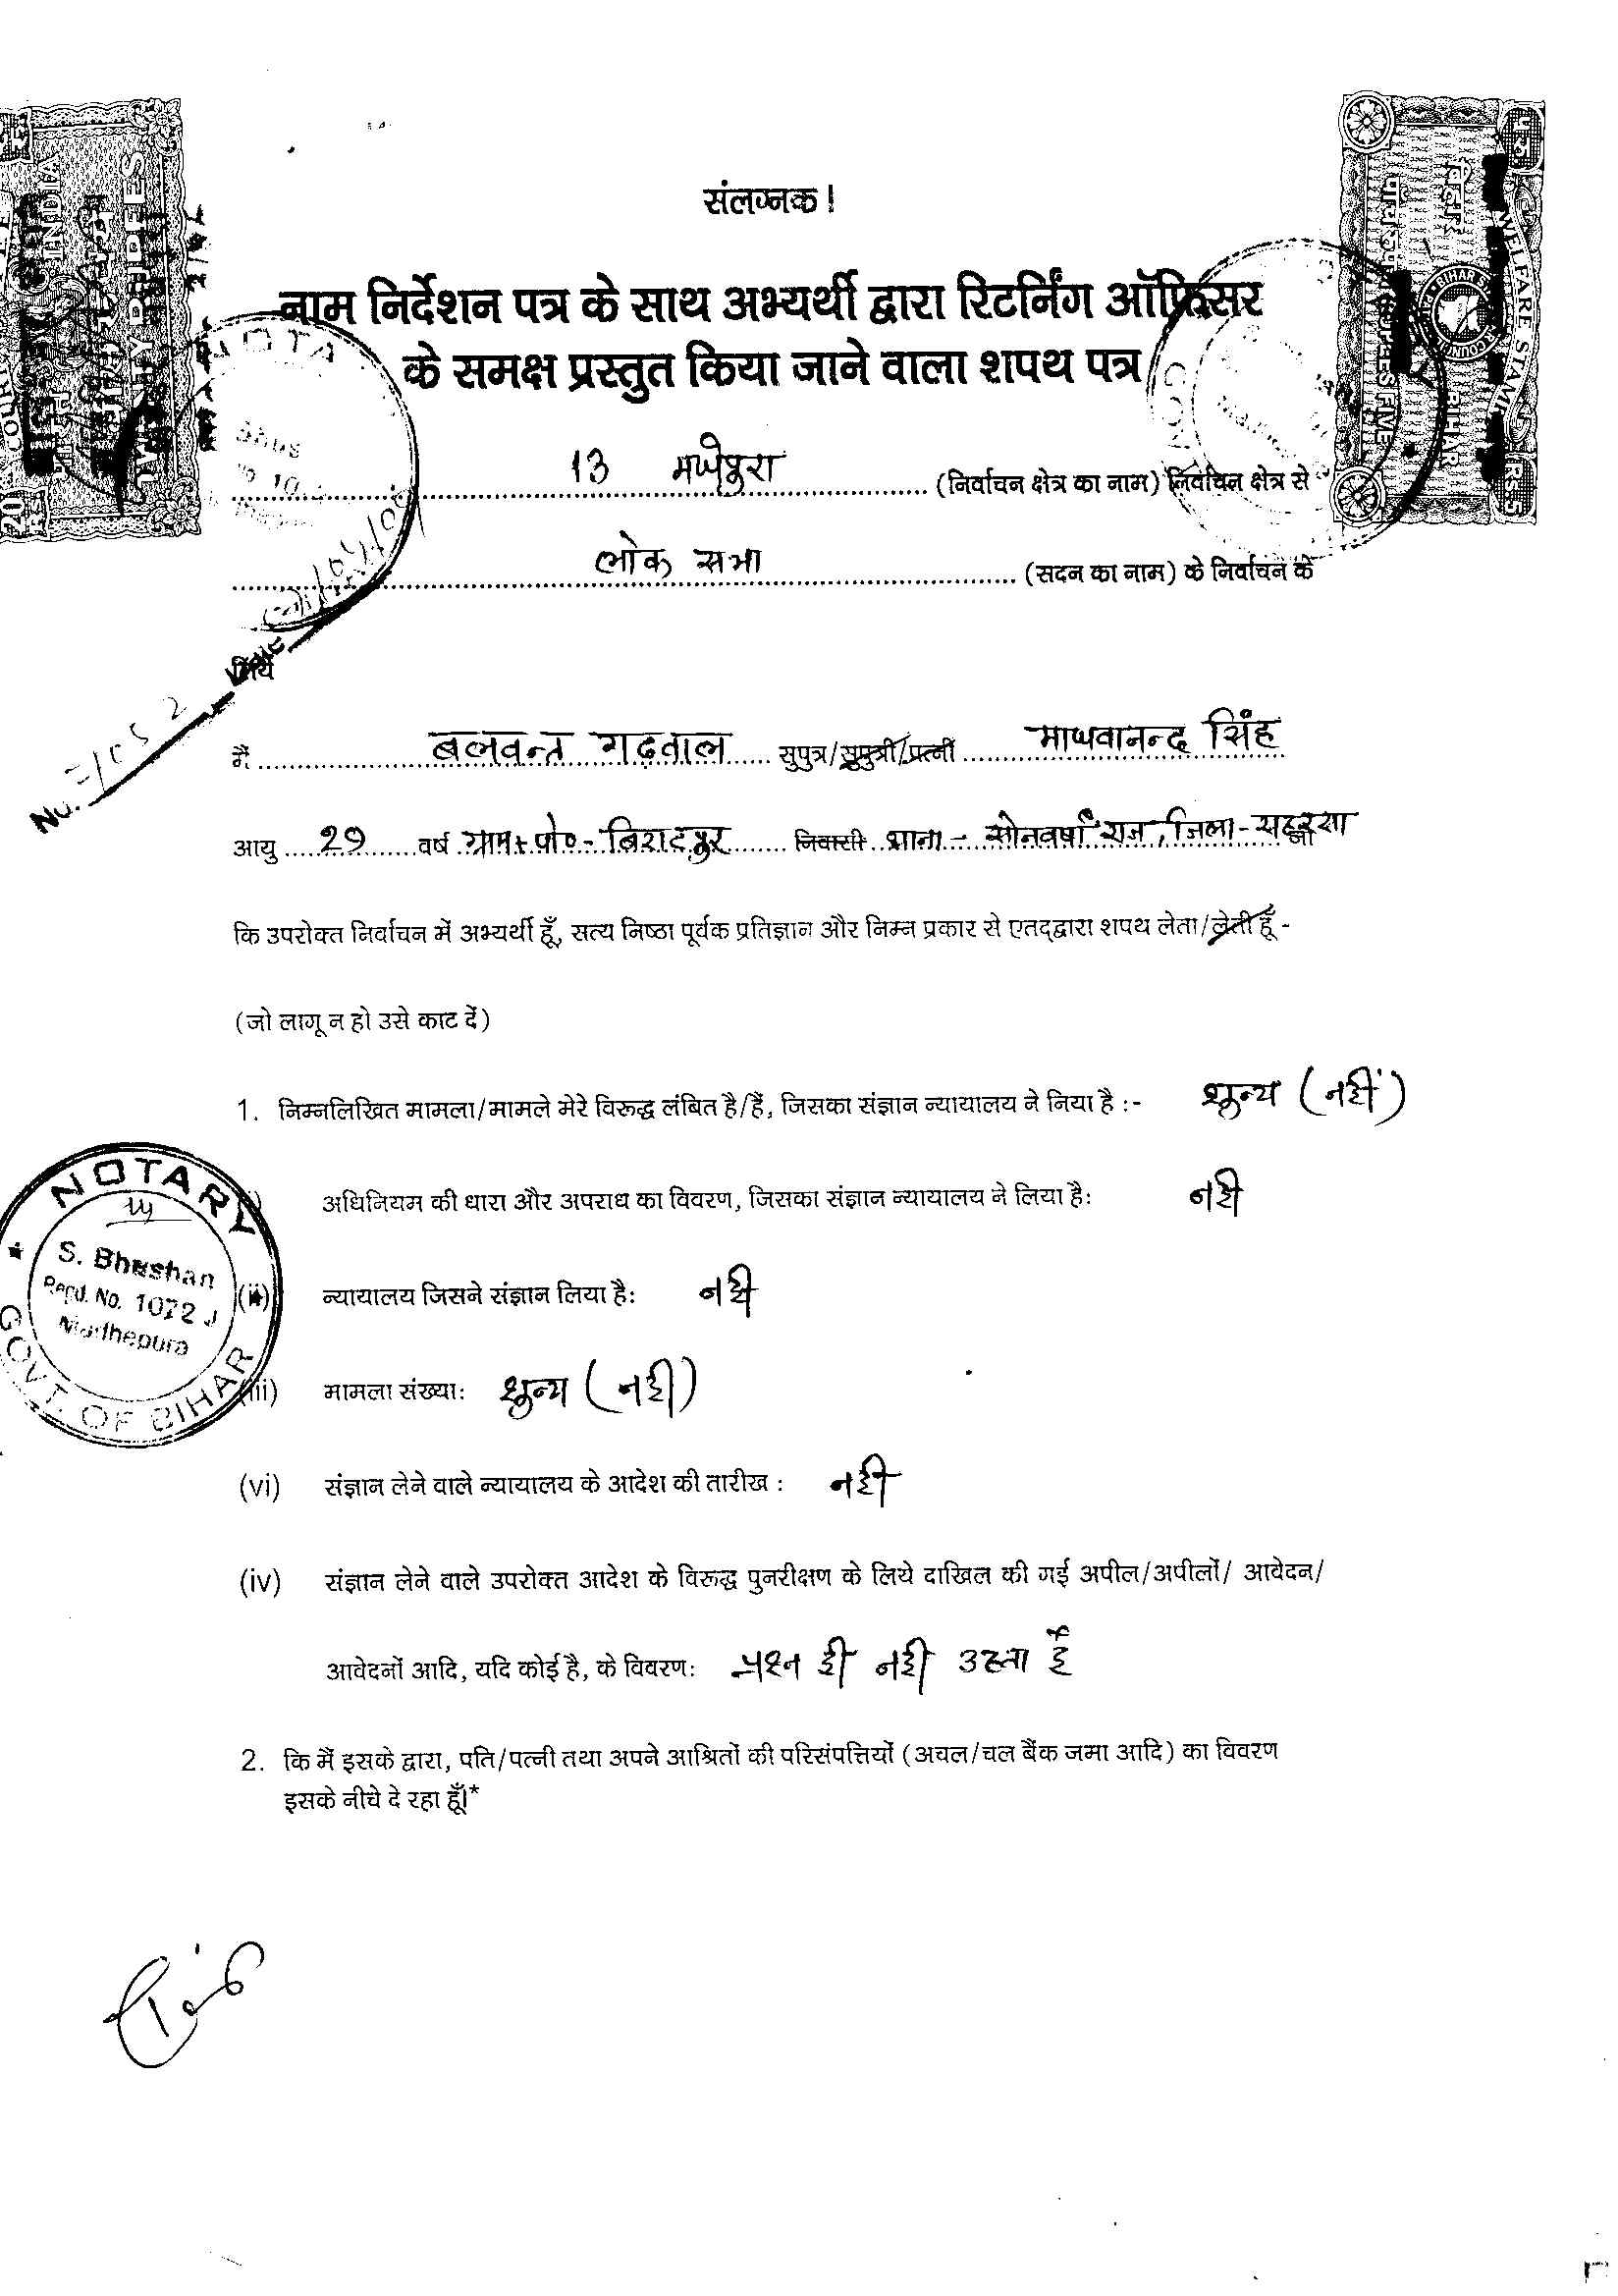 संलग्नक I
नाम निर्देशन पत्र के साथ अभ्यर्थी द्वारा रिटर्निंग ऑफिसर
के समक्ष प्रस्तुत किया जाने वाला शपथ पत्र
13 मधेपुरा (निर्वाचन क्षेत्र का नाम) निर्वाचन क्षेत्र से
लोक सभा (सदन का नाम) के निर्वाचन के
लिये
मैं बलवन्त गढवाल सुपुत्र/सुपुत्री/पत्नी माधवानन्द सिंह
आयु 29 वर्ष ग्राम+पो०-बिराटपुर निवासी थाना-सोनवर्षा राज, जिला-सहरसा जो
कि उपरोक्त निर्वाचन में अभ्यर्थी हूँ, सत्य निष्ठा पूर्वक प्रतिज्ञान और निम्न प्रकार से एतद्द्वारा शपथ लेता/लेती हूँ -
(जो लागू न हो उसे काट दें)
1. निम्नलिखित मामला/मामले मेरे विरूद्ध लंबित है/हैं, जिसका संज्ञान न्यायालय ने निया है :- शून्य (नहीं)
अधिनियम की धारा और अपराध का विवरण, जिसका संज्ञान न्यायालय ने लिया है: नही
(ii) न्यायालय जिसने संज्ञान लिया है: नही
(iii) मामला संख्या: शून्य (नही)
(vi) संज्ञान लेने वाले न्यायालय के आदेश की तारीख : नही
(iv) संज्ञान लेने वाले उपरोक्त आदेश के विरूद्ध पुनरीक्षण के लिये दाखिल की गई अपील/अपीलों/ आवेदन/
आवेदनों आदि, यदि कोई है, के विवरण: प्रश्न ही नही उठता है
2. कि मैं इसके द्वारा, पति/पत्नी तथा अपने आश्रितों की परिसंपत्तियों (अचल/चल बैंक जमा आदि) का विवरण
इसके नीचे दे रहा हूँ।*
NOTARY
S. Bhushan
Regd. No. 1072
Madhepura
GOVT. OF BIHAR
INDIA
TWENTY RUPEES
20
बिहार
पांच रुपये
RUPEES FIVE
BIHAR
WELFARE STAMP
Rs.5
No.